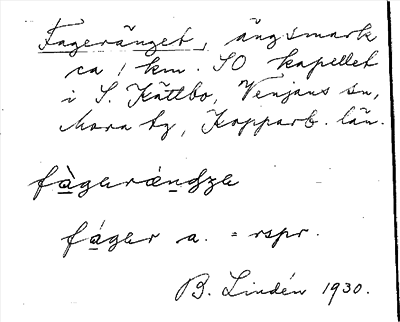 Fageränget, ängsmark
ca 1 km. SO kapellet
i S. Kättbo, Venjans sn,
Mora tg, Kopparb. län.
fàgerándze
fáger a. = rspr.
B. Lindén 1930.